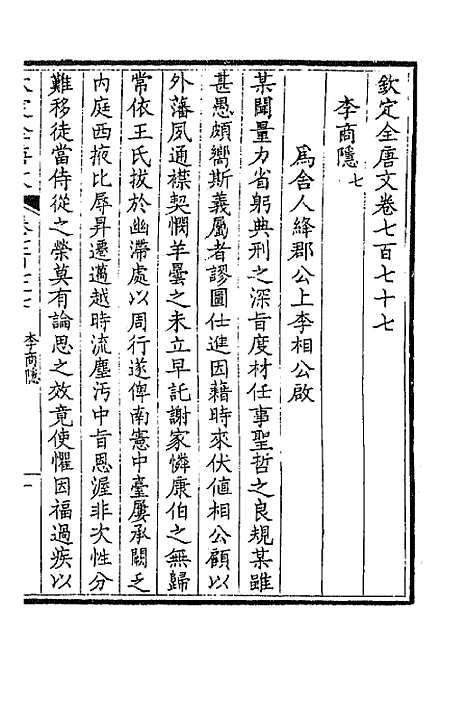 欽定全唐文卷七百七十七
李商隱 七
爲舍人絳郡公上李相公啟
某聞量力省躬典刑之深旨度材任事聖哲之良規某雖
甚愚頗嚮斯義屬者謬圖仕進因藉時來伏値相公顧以
外藩夙通襟契憫羊曇之未立早託謝家憐康伯之無歸
常依王氏拔於幽滯處以周行遂俾南憲中臺屢承闕乏
内庭西掖比辱昇遷邁越時流塵汚中旨恩渥非次性分
難移徒當侍從之榮莫有論思之效竟使懼因福過疾以
李商隱